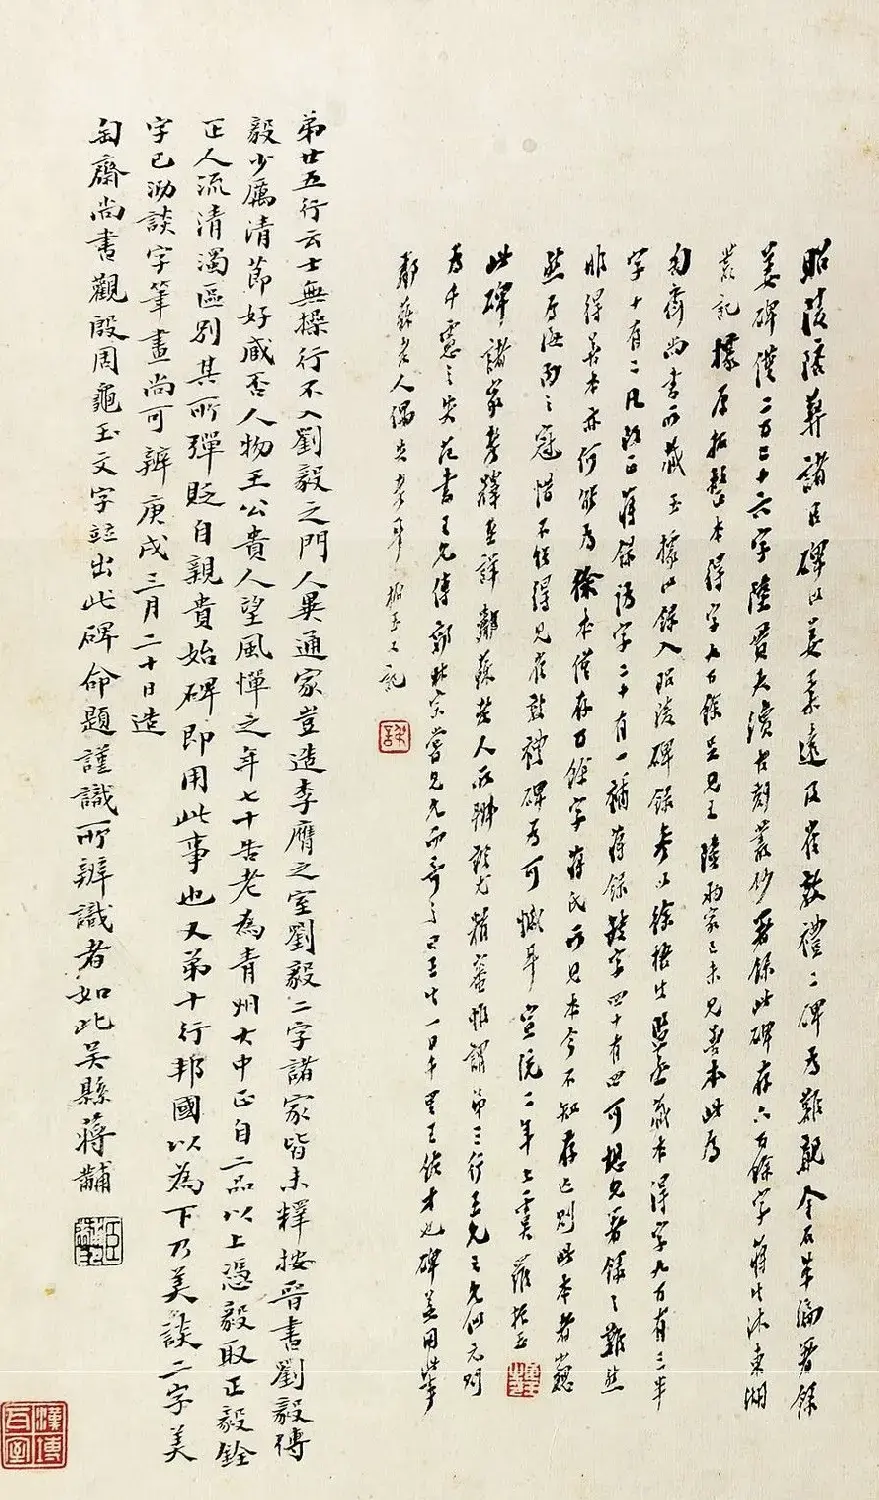 昭陵陪葬諸臣碑以姜柔遠及崔敦禮二碑為難覯金石萃編著錄
姜碑僅二百三十六字陸費夫續古刻叢鈔著錄此碑存六百餘字蔣生沐東湖
叢記據原拓整本得字九百餘是兄王陸兩家已未見善本此為
匋齋尚書所藏玉據以錄入昭陵碑錄參以徐 藏本得字九百有三半
字十有二凡改正蔣錄誤字二十有一補蔣錄缺字四十有四可想見著錄之難然
非得善本亦何能為徐本僅存百餘字蔣氏所見本今不知存亡則此本者
然為海內之冠惜不能得見崔敦禮碑為可憾耳宣統二年 羅振玉
此碑諸家考釋至詳鄰蘇老人所辨證尤精審惟謂第三行王允之允似元則
為千慮之失范書王允傳郭林宗嘗見允而奇之曰王生一日千里王佐才也碑蓋用此事
鄰蘇老人偶失考耳 振玉又記
弟廿五行云士無操行不入劉毅之門人異通家豈造李膺之室劉毅二字諸家皆未釋按晉書劉毅傳
毅少厲清節好臧否人物王公貴人望風憚之年七十告老為青州大中正自二品以上憑毅取正毅銓
正人流清濁區別其所彈貶自親貴始碑即用此事也又弟十行邦國以為下乃美談二字美
字已泐談字筆畫尚可辨庚戌三月二十日造
匋齋尚書觀殷周龜玉文字竝出此碑命題謹識所辨識者如此吳縣蔣黼